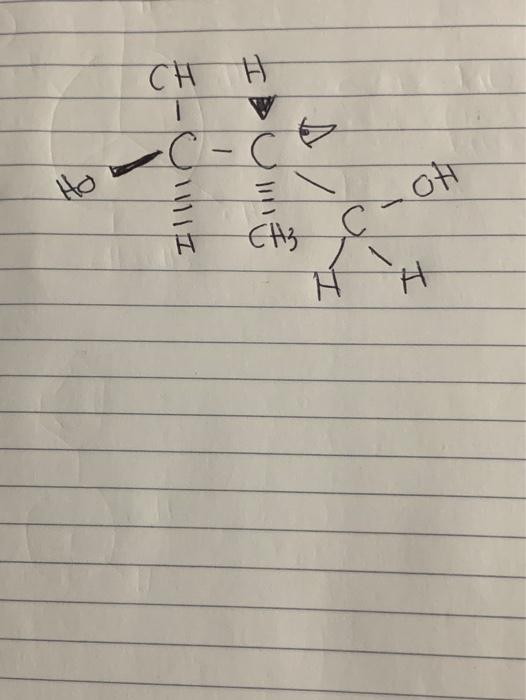 CH H
HO C - C
C - OH
H CH3
H H